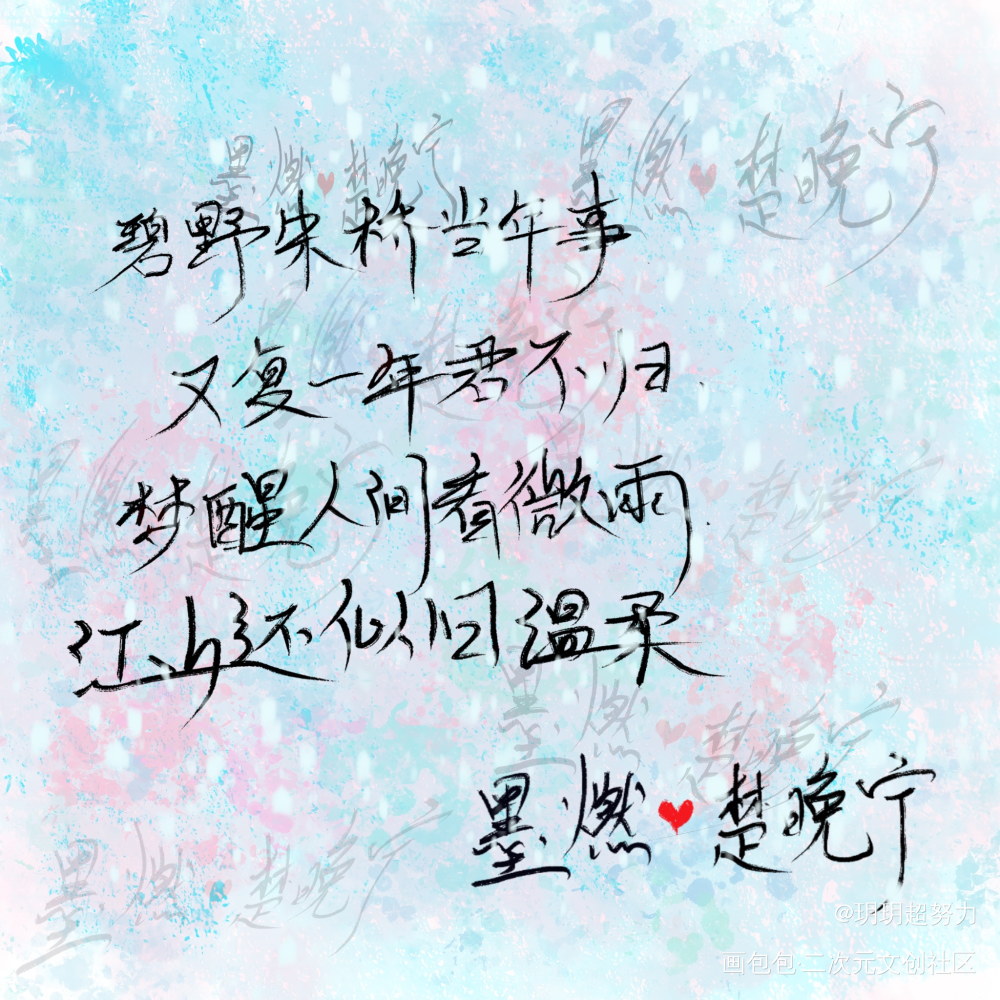 墨燃❤楚晚宁
墨燃❤楚晚宁
碧野朱桥当年事
墨燃 楚晚宁
又复一年君不归.
墨燃 楚晚宁
墨燃❤楚晚宁
梦醒人间看微雨.
江山还似旧温柔
墨燃❤楚晚宁
墨燃❤楚晚宁
墨燃❤楚晚宁
@玥玥超努力
画包包·二次元文创社区